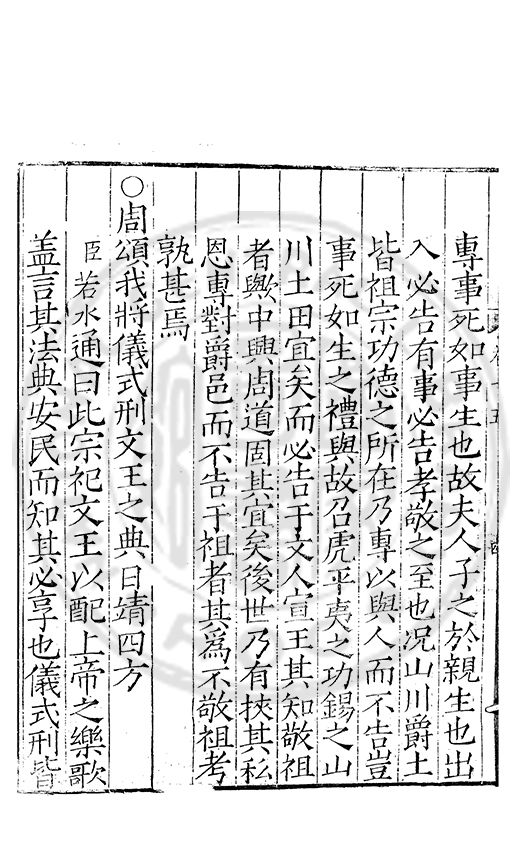 專事死如事生也故夫人子之於親生也出
入必告有事必告孝敬之至也况山川爵土
皆祖宗功德之所在乃專以與人而不告豈
事死如生之禮與故召虎平夷之功錫之山
川土田宜矣而必告于文人宣王其知敬祖
者歟中興周道固其宜矣後世乃有挾其私
恩專對爵邑而不告于祖者其爲不敬祖考
孰甚焉
○周頌我將儀式刑文王之典日靖四方
臣若水通曰此宗祀文王以配上帝之樂歌
盖言其法典安民而知其必享也儀式刑皆